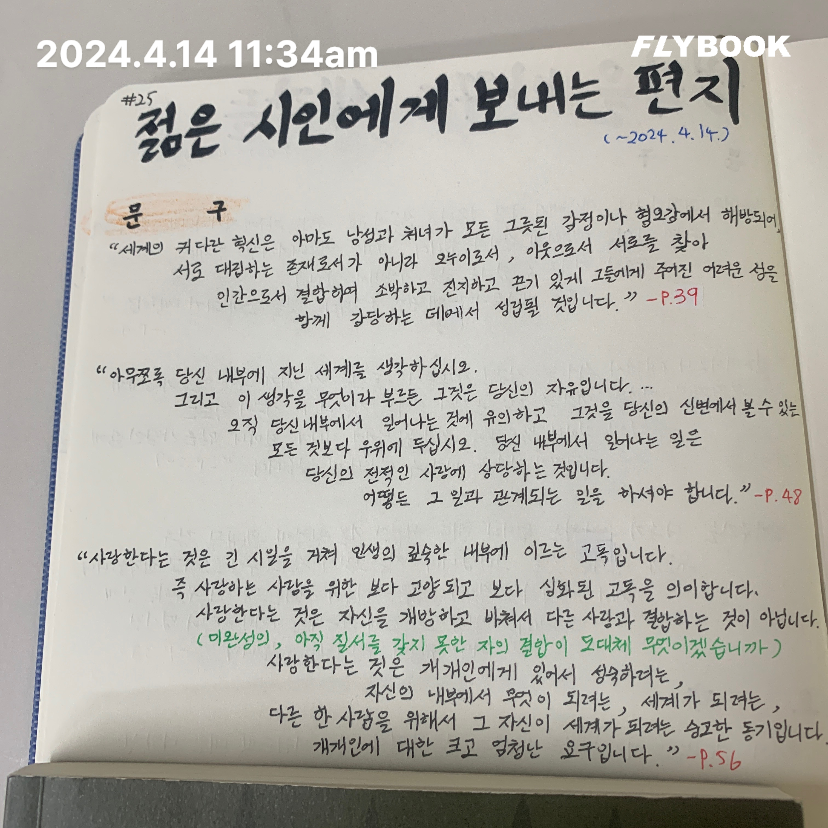 2024.4.14 11:34am
FLYBOOK
#25
젊은 시인에게 보내는 편지
(~2024.4.14.)
문 구
"세계의 커다란 혁신은 아마도 남성과 처녀가 모든 그릇된 감정이나 혐오감에서 해방되어,
서로 대립하는 존재로서가 아니라 오누이로서, 이웃으로서 서로를 찾아
인간으로서 결합하며 소박하고 진지하고 끈기 있게 그들에게 주어진 어려운 섬을
함께 감당하는 데에서 성립될 것입니다." -P.39
"아무쪼록 당신 내부에 지닌 세계를 생각하십시오.
그리고 이 생각을 무엇이라 부르든 그것은 당신의 자유입니다. …
오직 당신 내부에서 일어나는 것에 유의하고 그것을 당신의 신변에서 볼 수 있는
모든 것보다 우위에 두십시오. 당신 내부에서 일어나는 일은
당신의 전적인 사랑에 상당하는 것입니다.
어떻든 그 일과 관계되는 일을 하셔야 합니다." -P.48
"사랑한다는 것은 긴 시일을 거쳐 인생의 깊숙한 내부에 이르는 고독입니다.
즉 사랑하는 사람을 위한 보다 고양되고 보다 심화된 고독을 의미합니다.
사랑한다는 것은 자신을 개방하고 바쳐서 다른 사람과 결합하는 것이 아닙니다.
(미완성의, 아직 질서를 갖지 못한 자의 결합이 도대체 무엇이겠습니까)
사랑한다는 것은 개개인에게 있어서 성숙하려는,
자신의 내부에서 무엇이 되려는, 세계가 되려는,
다른 한 사람을 위해서 그 자신이 세계가 되려는 숭고한 동기입니다.
개개인에 대한 크고 엄청난 요구입니다." -P.56